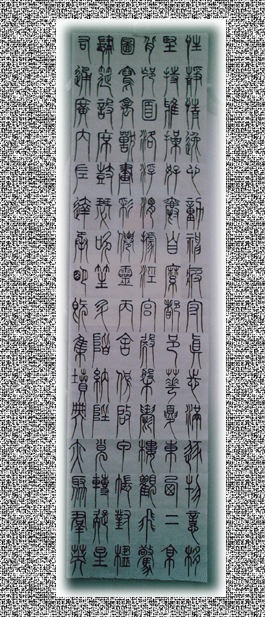 性靜情逸心動神疲守真志滿逐物意移
堅持雅操好爵自縻都邑華夏東西二京
背邙面洛浮渭據涇宮殿盤鬱樓觀飛驚
圖寫禽獸畫彩仙靈丙舍傍啟甲帳對楹
肆筵設席鼓瑟吹笙升階納陛弁轉疑星
右通廣內左達承明既集墳典亦聚群英